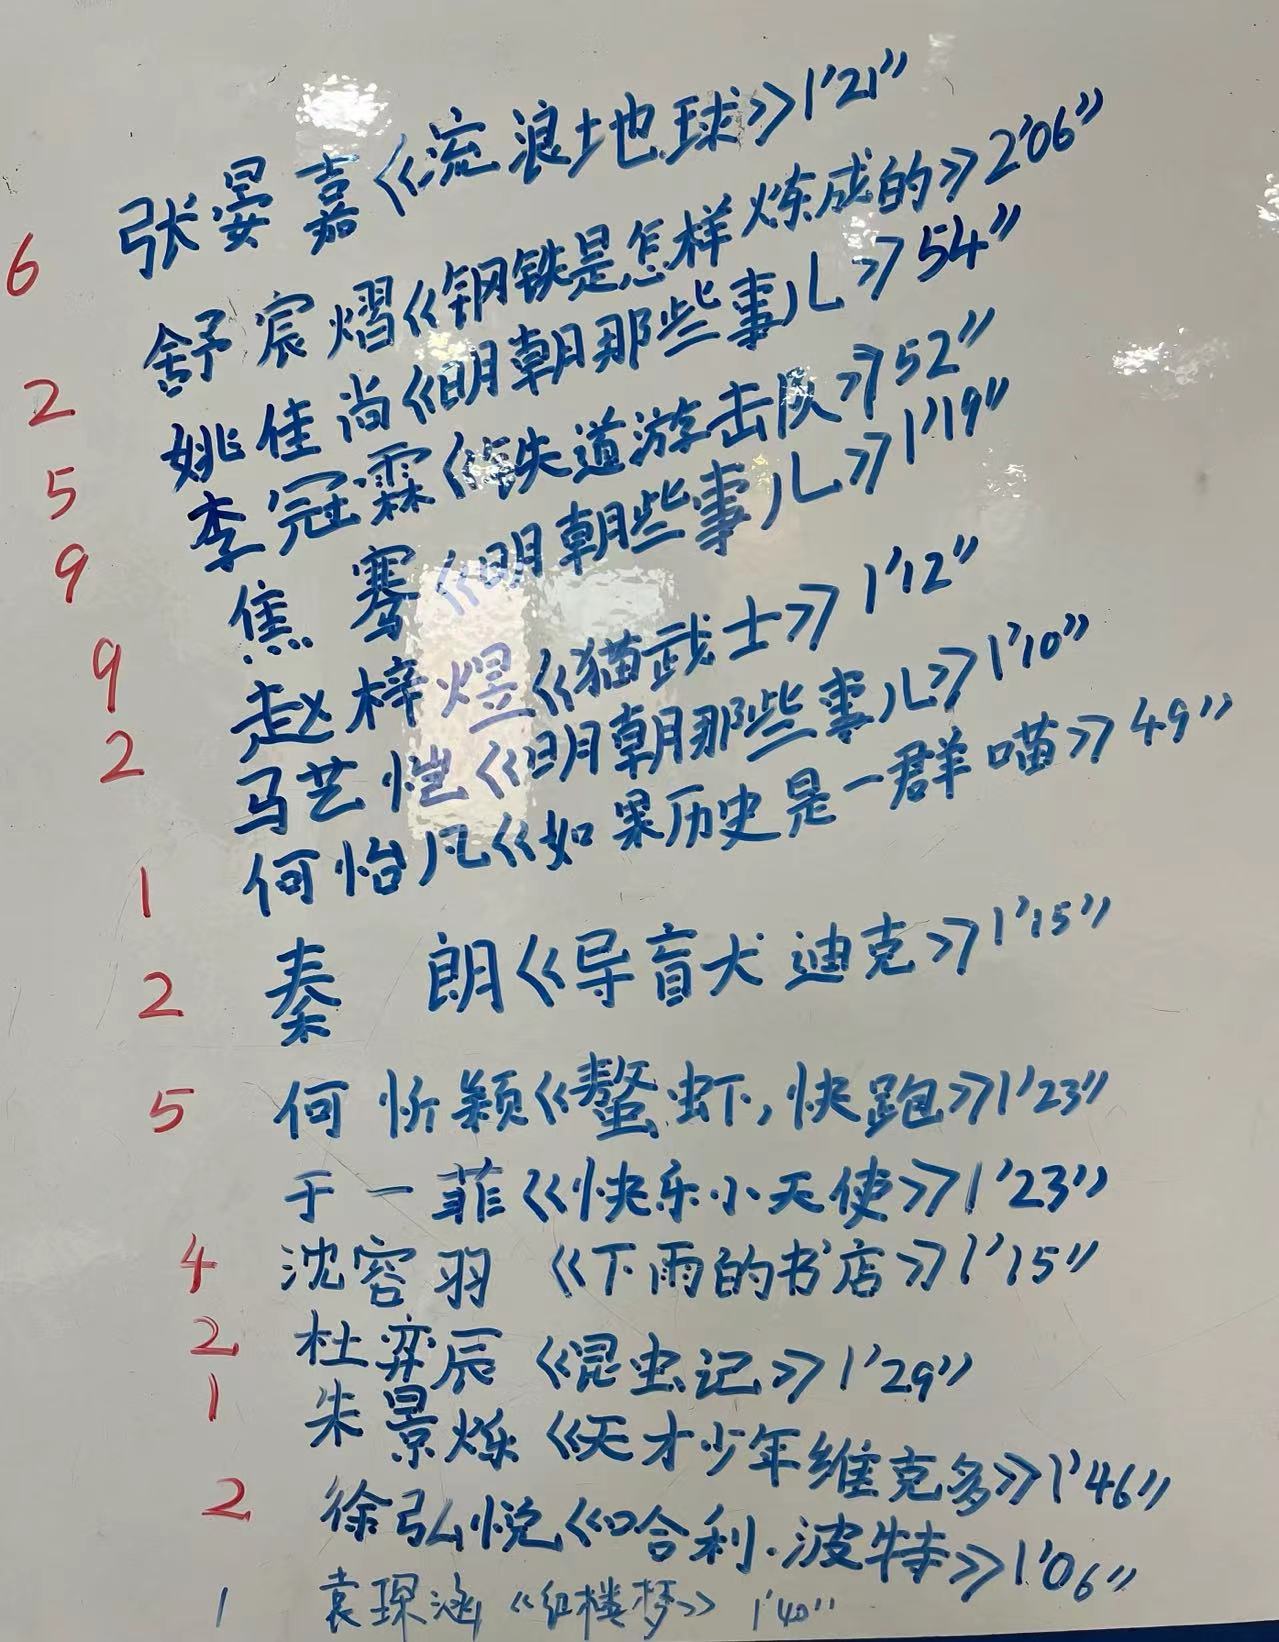 6 张晏嘉《流浪地球》1'21"
2 舒宸熠《钢铁是怎样炼成的》2'06"
5 姚佳尚《明朝那些事儿》54"
9 李冠霖《铁道游击队》52"
9 焦骞《明朝些事儿》1'19"
2 赵梓煜《猫武士》1'12"
马艺恺《明朝那些事儿》1'10"
1 何怡凡《如果历史是一群喵》49"
2 秦朗《导盲犬迪克》1'15"
5 何忻颖《螯虾,快跑》1'23"
于一菲《快乐小天使》1'23"
4 沈容羽《下雨的书店》1'15"
2 杜弈辰《昆虫记》1'29"
1 朱景烁《天才少年维克多》1'46"
2 徐弘悦《哈利·波特》1'06"
1 袁琛涵《红楼梦》1'40"